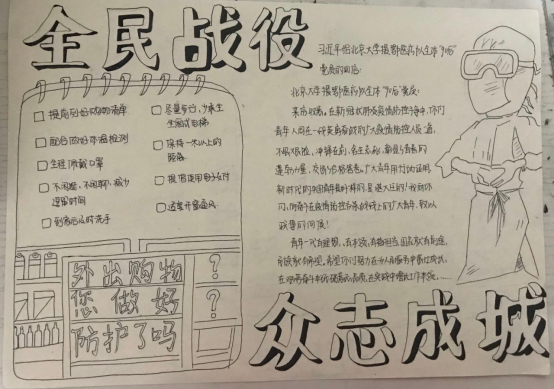 全民战役
提前列好购物清单
配合做好体温检测
全程佩戴口罩
不闲逛,不闲聊,减少
逗留时间
到家后及时洗手
尽量步行,少乘坐
保持一米以上的
距离
提倡使用电子支付
适当开窗通风
外出购物
您做好
防护了吗
?
?
习近平给北京大学援鄂医疗队全体“90后”
党员的回信:
北京大学援鄂医疗队全体“90后”党员:
来信收悉。在新冠肺炎疫情防控斗争中,你们
青年人同在一线英勇奋战的广大疫情防控人员一道,
不畏艰险、冲锋在前、舍生忘死,
新时代的中国青年是好样的,是堪当大任的!我向你
们、向奋斗在疫情防控各条战线上的广大青年,致以
诚挚的问候!
青年一代有理想、有本领、有担当,国家就有前途,
民族就有希望。希望你们努力在为人民服务中茁壮成长、
众志成城